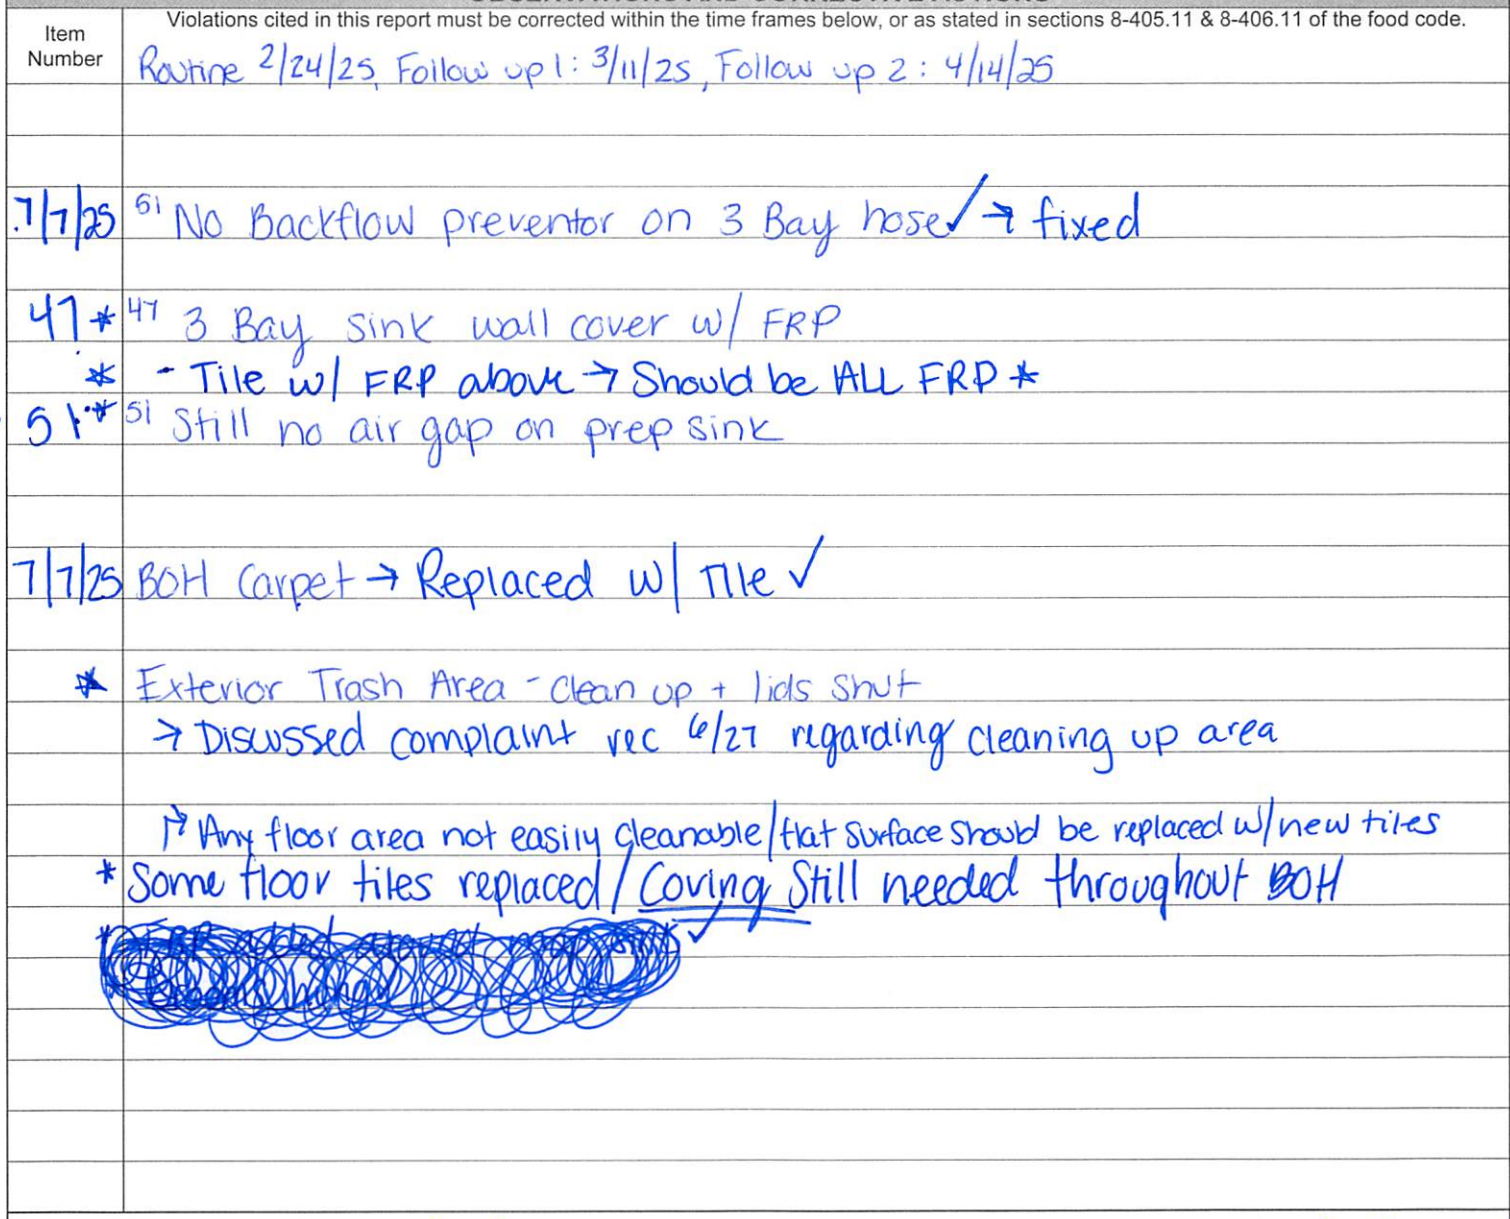 OBSERVATIONS AND CORRECTIVE ACTIONS
Item Number
Violations cited in this report must be corrected within the time frames below, or as stated in sections 8-405.11 & 8-406.11 of the food code.
Routine 2/24/25, Follow up 1: 3/11/25, Follow up 2: 4/14/25
7/7/25 51 No Backflow preventor on 3 Bay hose ✓ → fixed
47 * 47 3 Bay sink wall cover w/ FRP
* - Tile w/ FRP above → Should be ALL FRP *
51 * 51 Still no air gap on prep sink
7/7/25 BOH Carpet → Replaced w/ Tile ✓
* Exterior Trash Area - clean up + lids shut
→ Discussed complaint rec 6/27 regarding cleaning up area
→ Any floor area not easily cleanable/flat surface should be replaced w/ new tiles
* Some floor tiles replaced / Coving Still needed throughout BOH